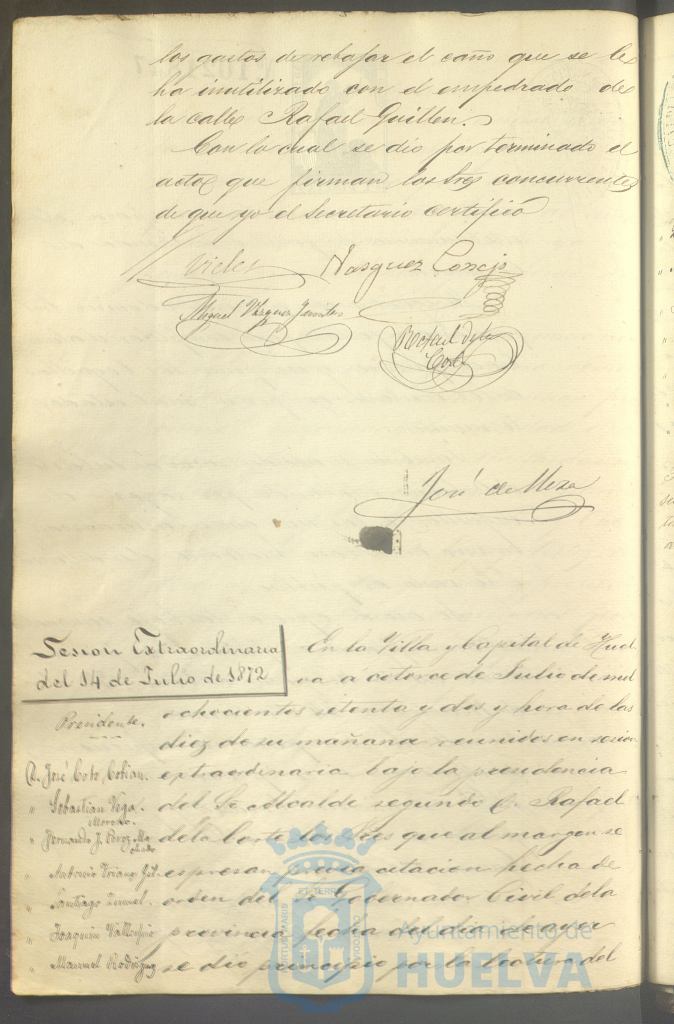 los gastos de rebajar el caño que se le
ha inutilizado con el empedrado de
la calle Rafael Guillen.
Con lo cual se dio por terminado el
acto que firman los Sres concurrentes
de que yo el Secretario certifico
Vasquez Conejo
Miguel Vázquez
Rafael de la
Corte
José de Meza
Sesion Extraordinaria
del 14 de Julio de 1872
Presidente.
D. José Coto, Cobian.
" Sebastian Vega.
Moreno.
" Fernando J. Perez Ma
chado
" Antonio Triano Gil
" Santiago
" Joaquin Vallespin
" Manuel Rodriguez
En la Villa y Capital de Huel
va á catorce de Julio de mil
ochocientos setenta y dos y hora de las
diez de su mañana reunidos en sesion
extraordinaria bajo la presidencia
del Sr Alcalde segundo D. Rafael
de la Corte los Sres que al margen se
espresan previa citacion hecha de
orden del Sr Gobernador Civil de la
provincia fecha del dia de ayer
se dio principio por la lectura del
Ayuntamiento de
HUELVA